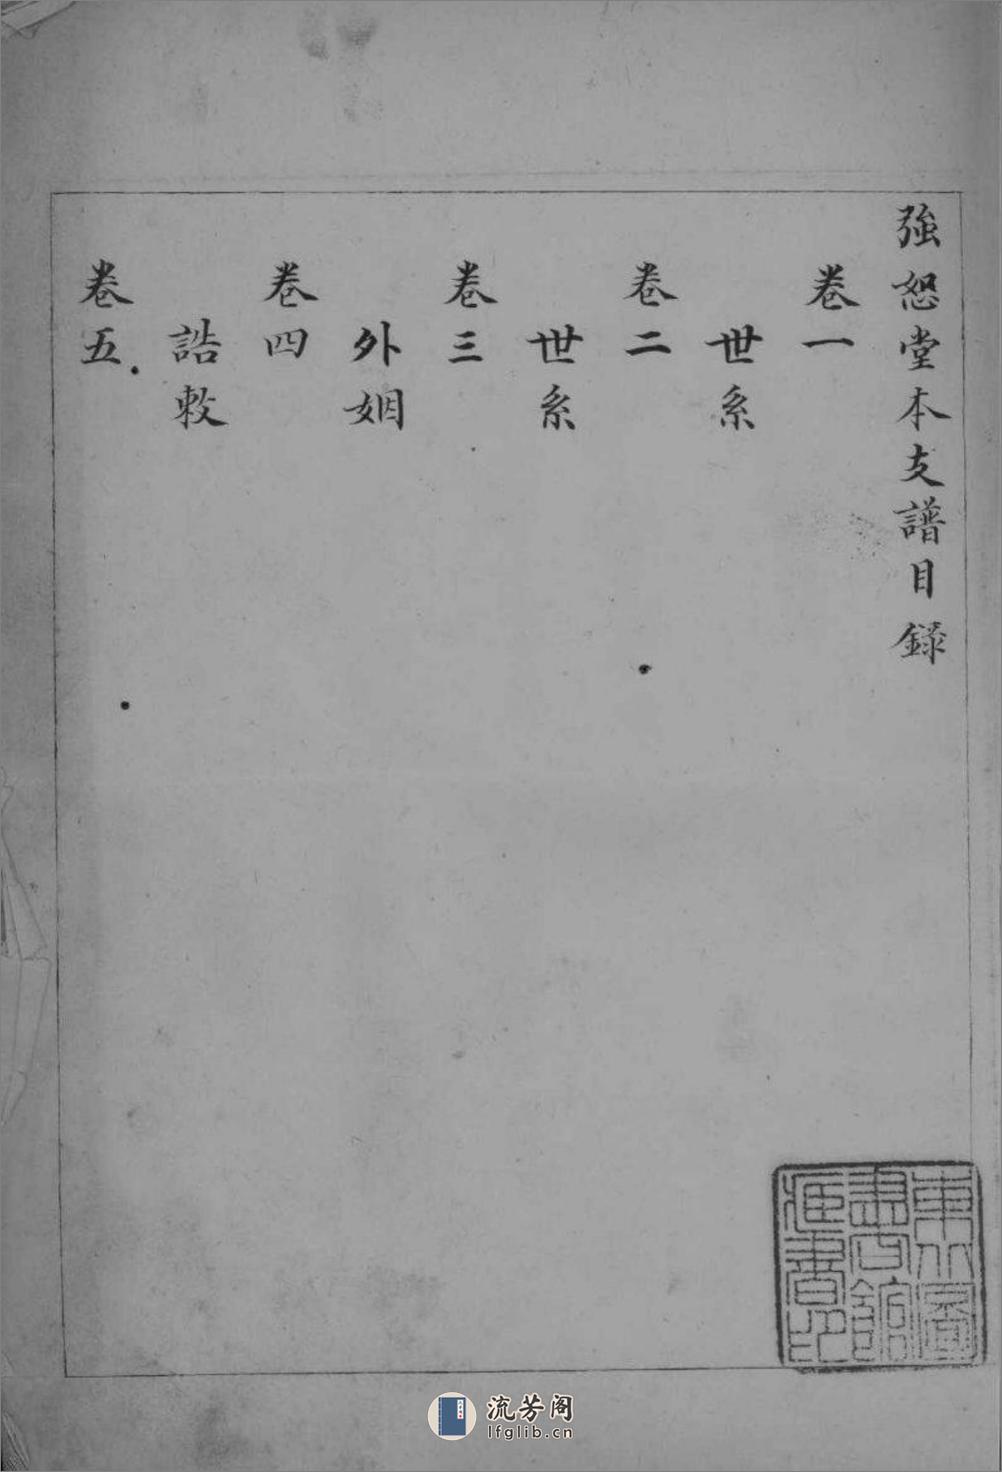 強恕堂本支譜目録
卷一
世系
卷二
世系
卷三
外姻
卷四
誥敕
卷五
東北圖
書館
藏書印
流芳阁
lfglib.cn